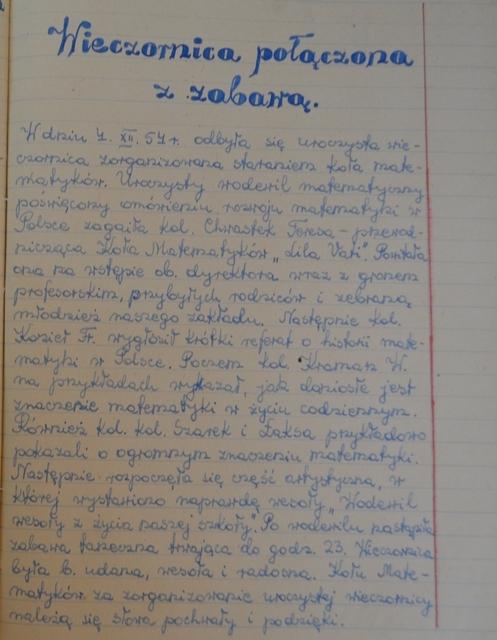 Wieczornica połączona
z zabawą.
W dniu 7. XII. 57 r. odbyła się uroczysta wie-
czornica zorganizowana staraniem koła mate-
matyków. Uroczysty wodewil matematyczny
poświęcony omówieniu rozwoju matematyki w
Polsce zagaiła kol. Chwastek Teresa - przewod-
nicząca Koła Matematyków „Lila Vati". Powitała
ona na wstępie ob. dyrektora wraz z gronem
profesorskim, przybyłych rodziców i zebraną
młodzież naszego zakładu. Następnie kol.
Kozieł Fr. wygłosił krótki referat o historii mate-
matyki w Polsce. Poczem kol. Kramarz W.
na przykładach wykazał, jak doniosłe jest
znaczenie matematyki w życiu codziennym.
Również kol. kol. Szarek i Laksa przykładowo
pokazali o ogromnym znaczeniu matematyki.
Następnie rozpoczęła się część artystyczna, w
której wystawiono naprawdę wesoły „Wodewil
wesoły z życia naszej szkoły". Po wodewilu nastąpiła
zabawa taneczna trwająca do godz. 23. Wieczornica
była b. udana, wesoła i radosna. Kołu Mate-
matyków za zorganizowanie uroczystej wieczornicy
należą się słowa pochwały i podzięki.